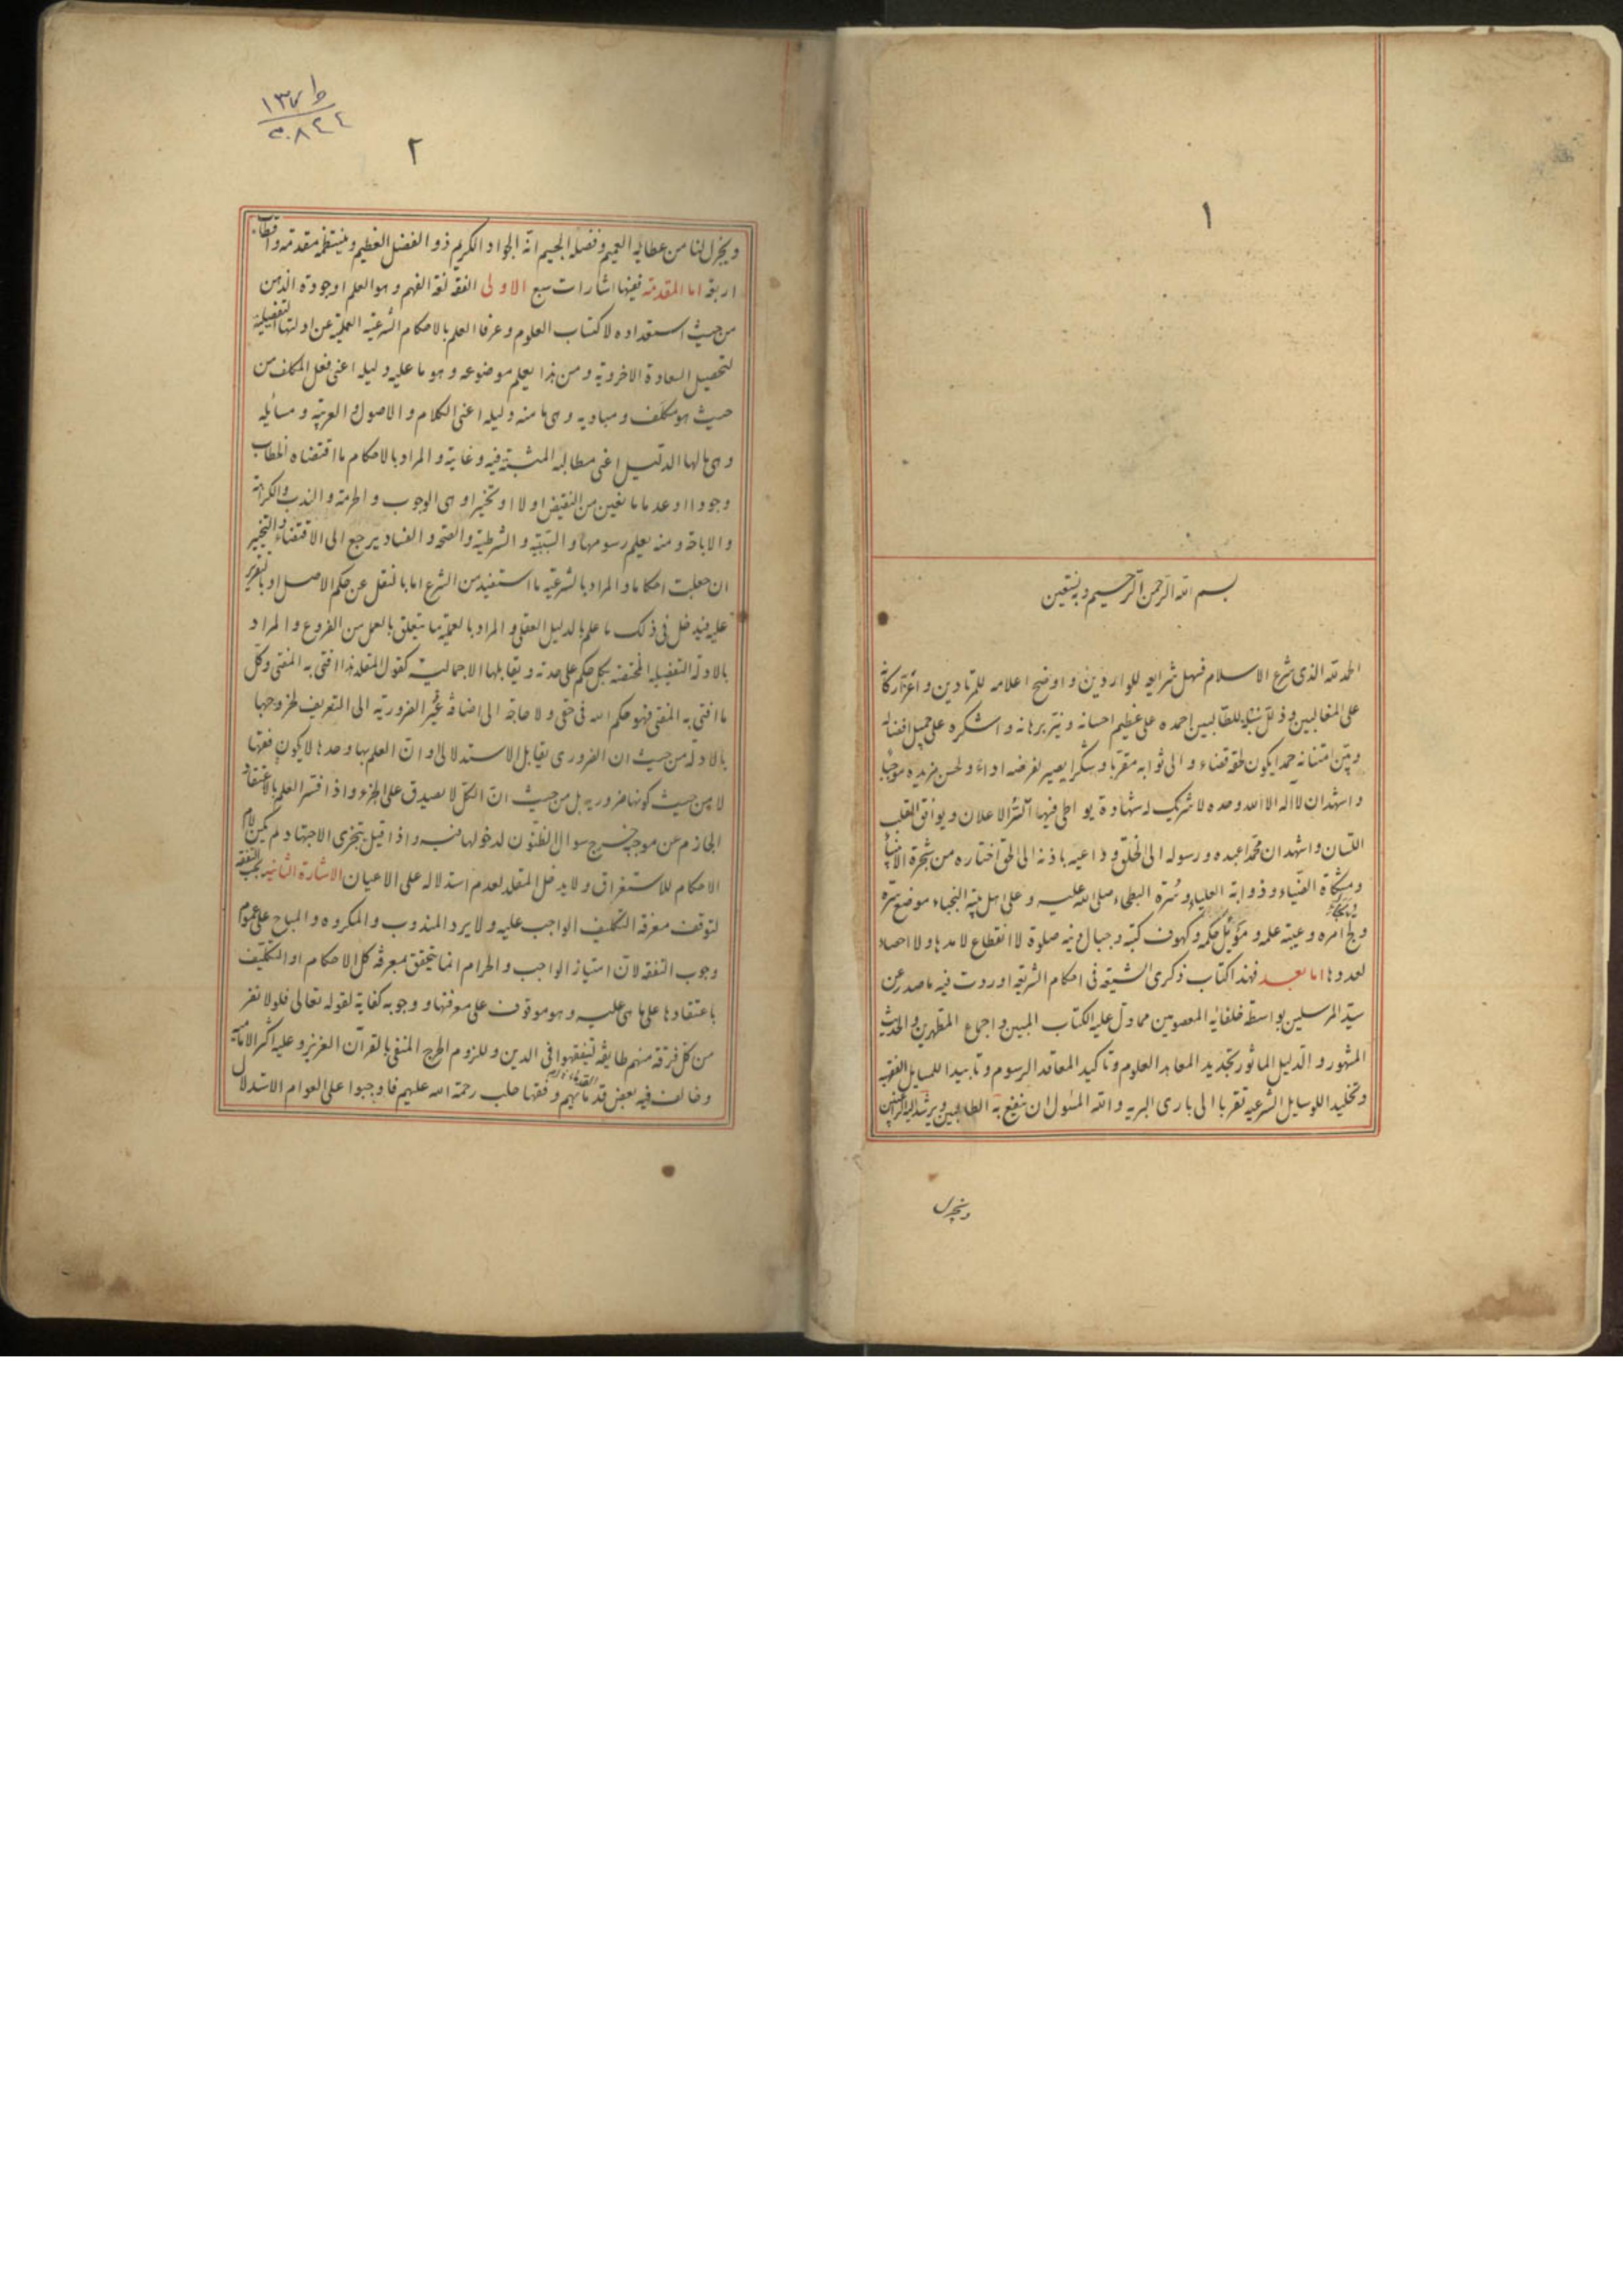 ١
بسم الله الرحمن الرحيم وبه نستعين
الحمد لله الذى شرع الاسلام فسهل شرايعه للواردين و اوضح اعلامه للمرتادين و اعز اركانه
على المغالبين و ذلل سبله للطالبين احمده على عظيم احسانه و نير برهانه و اشكره على جميل افضاله
و امتنانه حمدا يكون لحقه قضاء و الى ثوابه مقربا و شكرا يصير لفرضه اداء و لحسن مزيده موجبا
و اشهد ان لا اله الا الله وحده لا شريك له شهادة يواطى فيها السر الاعلان و يوافق القلب
اللسان و اشهد ان محمدا عبده و رسوله الى الخلق و داعيه باذنه الى الحق اختاره من شجرة الانبياء
و مشكاة الضياء و ذوابة العلياء و سرة البطحاء صلى الله عليه و على اهل بيته النجباء موضع سره
و لجأ امره و عيبة علمه و موئل حكمه و كهوف كتبه و جبال دينه صلوة لا انقطاع لامدها و لا احصاء
لعددها اما بعد فهذا كتاب ذكرى الشيعة فى احكام الشريعة اوردت فيه ما صدر عن
سيد المرسلين بواسطة خلفائه المعصومين مما دل عليه الكتاب المبين و اجماع المطهرين و الحديث
المشهور و الدليل الماثور تجديد المعاهد العلوم و تاكيد المعاقد الرسوم و تاييدا للمسايل الفقهيه
و تخليدا للوسايل الشرعيه تقربا الى بارى البريه و الله المسئول ان ينفع به الطالبين و يرشد به الراغبين
و يجزل
١٣٧ ط
٥٠٨٤٤
٢
و يجزل لنا من عطائه العميم و فضله الجسيم انه الجواد الكريم ذو الفضل العظيم و ينتظمه مقدمة و اقطاب
اربعة اما المقدمة ففيها اشارات سبع الاولى الفقه لغة الفهم و هو العلم او جودة الذهن
من حيث استعداده لاكتساب العلوم و عرفا العلم بالاحكام الشرعية العملية عن ادلتها التفصيلية
لتحصيل السعادة الاخروية و من هذا يعلم موضوعه و هو ما عليه دليله اعنى فعل المكلف من
حيث هو مكلف و مباديه و هى ما منه دليله اعنى الكلام و الاصول و العربية و مسائله
و هى ما لها الدليل اعنى مطالبه المثبتة فيه و غايته و المراد بالاحكام ما اقتضاه الخطاب
وجودا او عدما مانعين من النقيض او لا او تخييرا و هى الوجوب و الحرمة و الندب و الكراهة
و الاباحة و منه يعلم رسومها و السببية و الشرطية و الصحه و الفساد يرجع الى الاقتضاء و التخيير
ان جعلت احكاما و المراد بالشرعية ما استفيد من الشرع اما بالنقل عن حكم الاصل او بالتقرير
عليه فيدخل فى ذلك ما علم بالدليل العقلى و المراد بالعملية ما يتعلق بالعمل من الفروع و المراد
بالادلة التفصيلية المختصة بكل حكم على حدته و يقابلها الاجمالية كقول المقلد هذا افتى به المفتى و كل
ما افتى به المفتى فهو حكم الله فى حقى و لا حاجة الى اضافة غير الضرورية الى التعريف لخروجها
بالادلة من حيث ان الضرورى يقابل الاستدلالى او ان العلم بها وحدها لا يكون فقها
لا من حيث كونها ضرورية بل من حيث ان الكل لا يصدق على الجزء و اذا فسر العلم بالاعتقاد
الجازم عن موجب خرج سوال الظنون لدخولها فيه و اذا قيل بتجزى الاجتهاد لم يكن لام
الاحكام للاستغراق و لا يدخل المقلد لعدم استدلاله على الاعيان الاشارة الثانية يجب التفقه
لتوقف معرفة التكليف الواجب عليه و لا يرد المندوب و المكروه و المباح على عموم
وجوب التفقه لان امتياز الواجب و الحرام انما يتحقق بمعرفة كل الاحكام او التكليف
باعتقادها على ما هى عليه و هو موقوف على معرفتها و وجوبه كفاية لقوله تعالى فلولا نفر
من كل فرقة منهم طايفة ليتفقهوا فى الدين و للزوم الحرج المنفى بالقرآن العزيز و عليه اكثر الامامية
و خالف فيه بعض قدمائهم و فقها حلب رحمة الله عليهم فاوجبوا على العوام الاستدلال